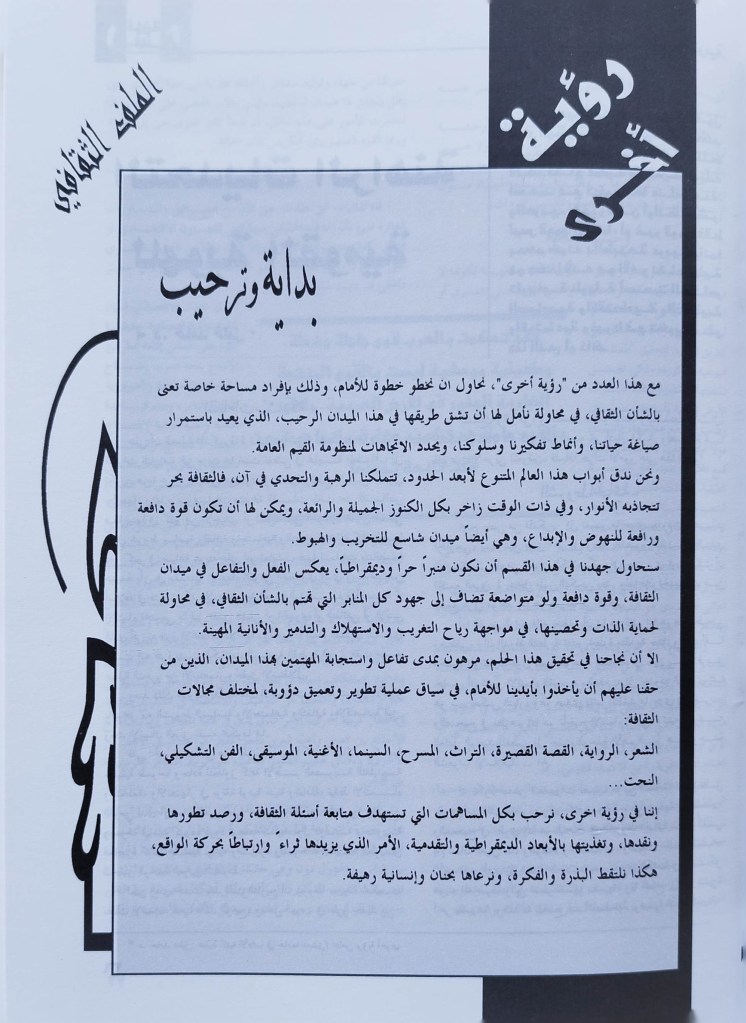 رؤية
أخرى
الملف الثقافي
بداية وترحيب
مع هذا العدد من "رؤية أخرى"، نحاول ان نخطو خطوة للأمام، وذلك بإفراد مساحة خاصة تعنى
بالشأن الثقافي، في محاولة نأمل لها أن تشق طريقها في هذا الميدان الرحيب، الذي يعيد باستمرار
صياغة حياتنا، وأنماط تفكيرنا وسلوكنا، ويحدد الاتجاهات لمنظومة القيم العامة.
ونحن ندق أبواب هذا العالم المتنوع لأبعد الحدود، تتملكنا الرهبة والتحدي في آن، فالثقافة بحر
تتجاذبه الأنوار، وفي ذات الوقت زاخر بكل الكنوز الجميلة والرائعة، ويمكن لها أن تكون قوة دافعة
ورافعة للنهوض والإبداع، وهي أيضاً ميدان شاسع للتخريب والهبوط.
سنحاول جهدنا في هذا القسم أن نكون منبراً حراً وديمقراطياً، يعكس الفعل والتفاعل في ميدان
الثقافة، وقوة دافعة ولو متواضعة تضاف إلى جهود كل المنابر التي تهتم بالشأن الثقافي، في محاولة
لحماية الذات وتحصينها، في مواجهة رياح التغريب والاستهلاك والتدمير والأنانية المهينة.
الا أن نجاحنا في تحقيق هذا الحلم، مرهون بمدى تفاعل واستجابة المهتمين بهذا الميدان، الذين من
حقنا عليهم أن يأخذوا بأيدينا للأمام، في سياق عملية تطوير وتعميق دؤوبة، لمختلف مجالات
الثقافة:
الشعر، الرواية، القصة القصيرة، التراث، المسرح، السينما، الأغنية، الموسيقى، الفن التشكيلي،
النحت...
إننا في رؤية اخرى، نرحب بكل المساهمات التي تستهدف متابعة أسئلة الثقافة، ورصد تطورها
ونقدها، وتغذيتها بالأبعاد الديمقراطية والتقدمية، الأمر الذي يزيدها ثراءً وارتباطاً بحركة الواقع،
هكذا نلتقط البذرة والفكرة، ونرعاها بحنان وإنسانية رهيفة.